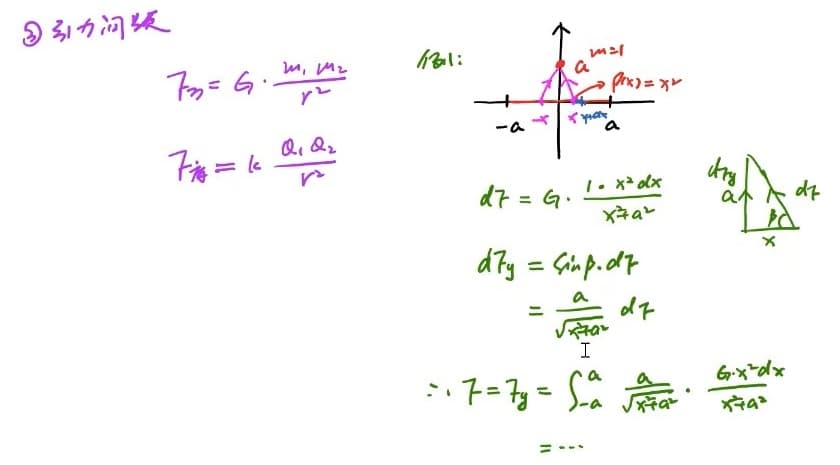 ③ 引力问题
F万 = G · m₁ m₂ / r²
F静 = k Q₁ Q₂ / r²
例1:
a m=1
ρ(x) = x²
-a -x x x+dx a
dF = G · 1 · x²dx / x²+a²
dFy a dF β x
dFy = sinβ · dF
= a / √x²+a² dF
∴ F = Fy = ∫₋ₐᵃ a / √x²+a² · G·x²dx / x²+a²
= ...